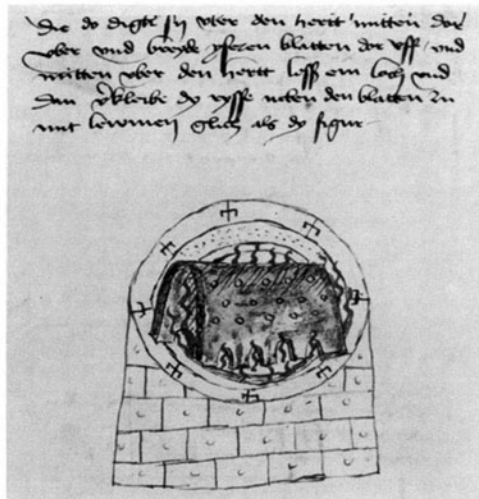 die do digke sy vber den herit mitten dor
vber vnd breyde yseren blatten dor vff / vnd
mitten vber den hertt loss ein loch vnd
dan v̈kleibe dy ryffe neben den blatten zu
mit lewmen glich als dy figur